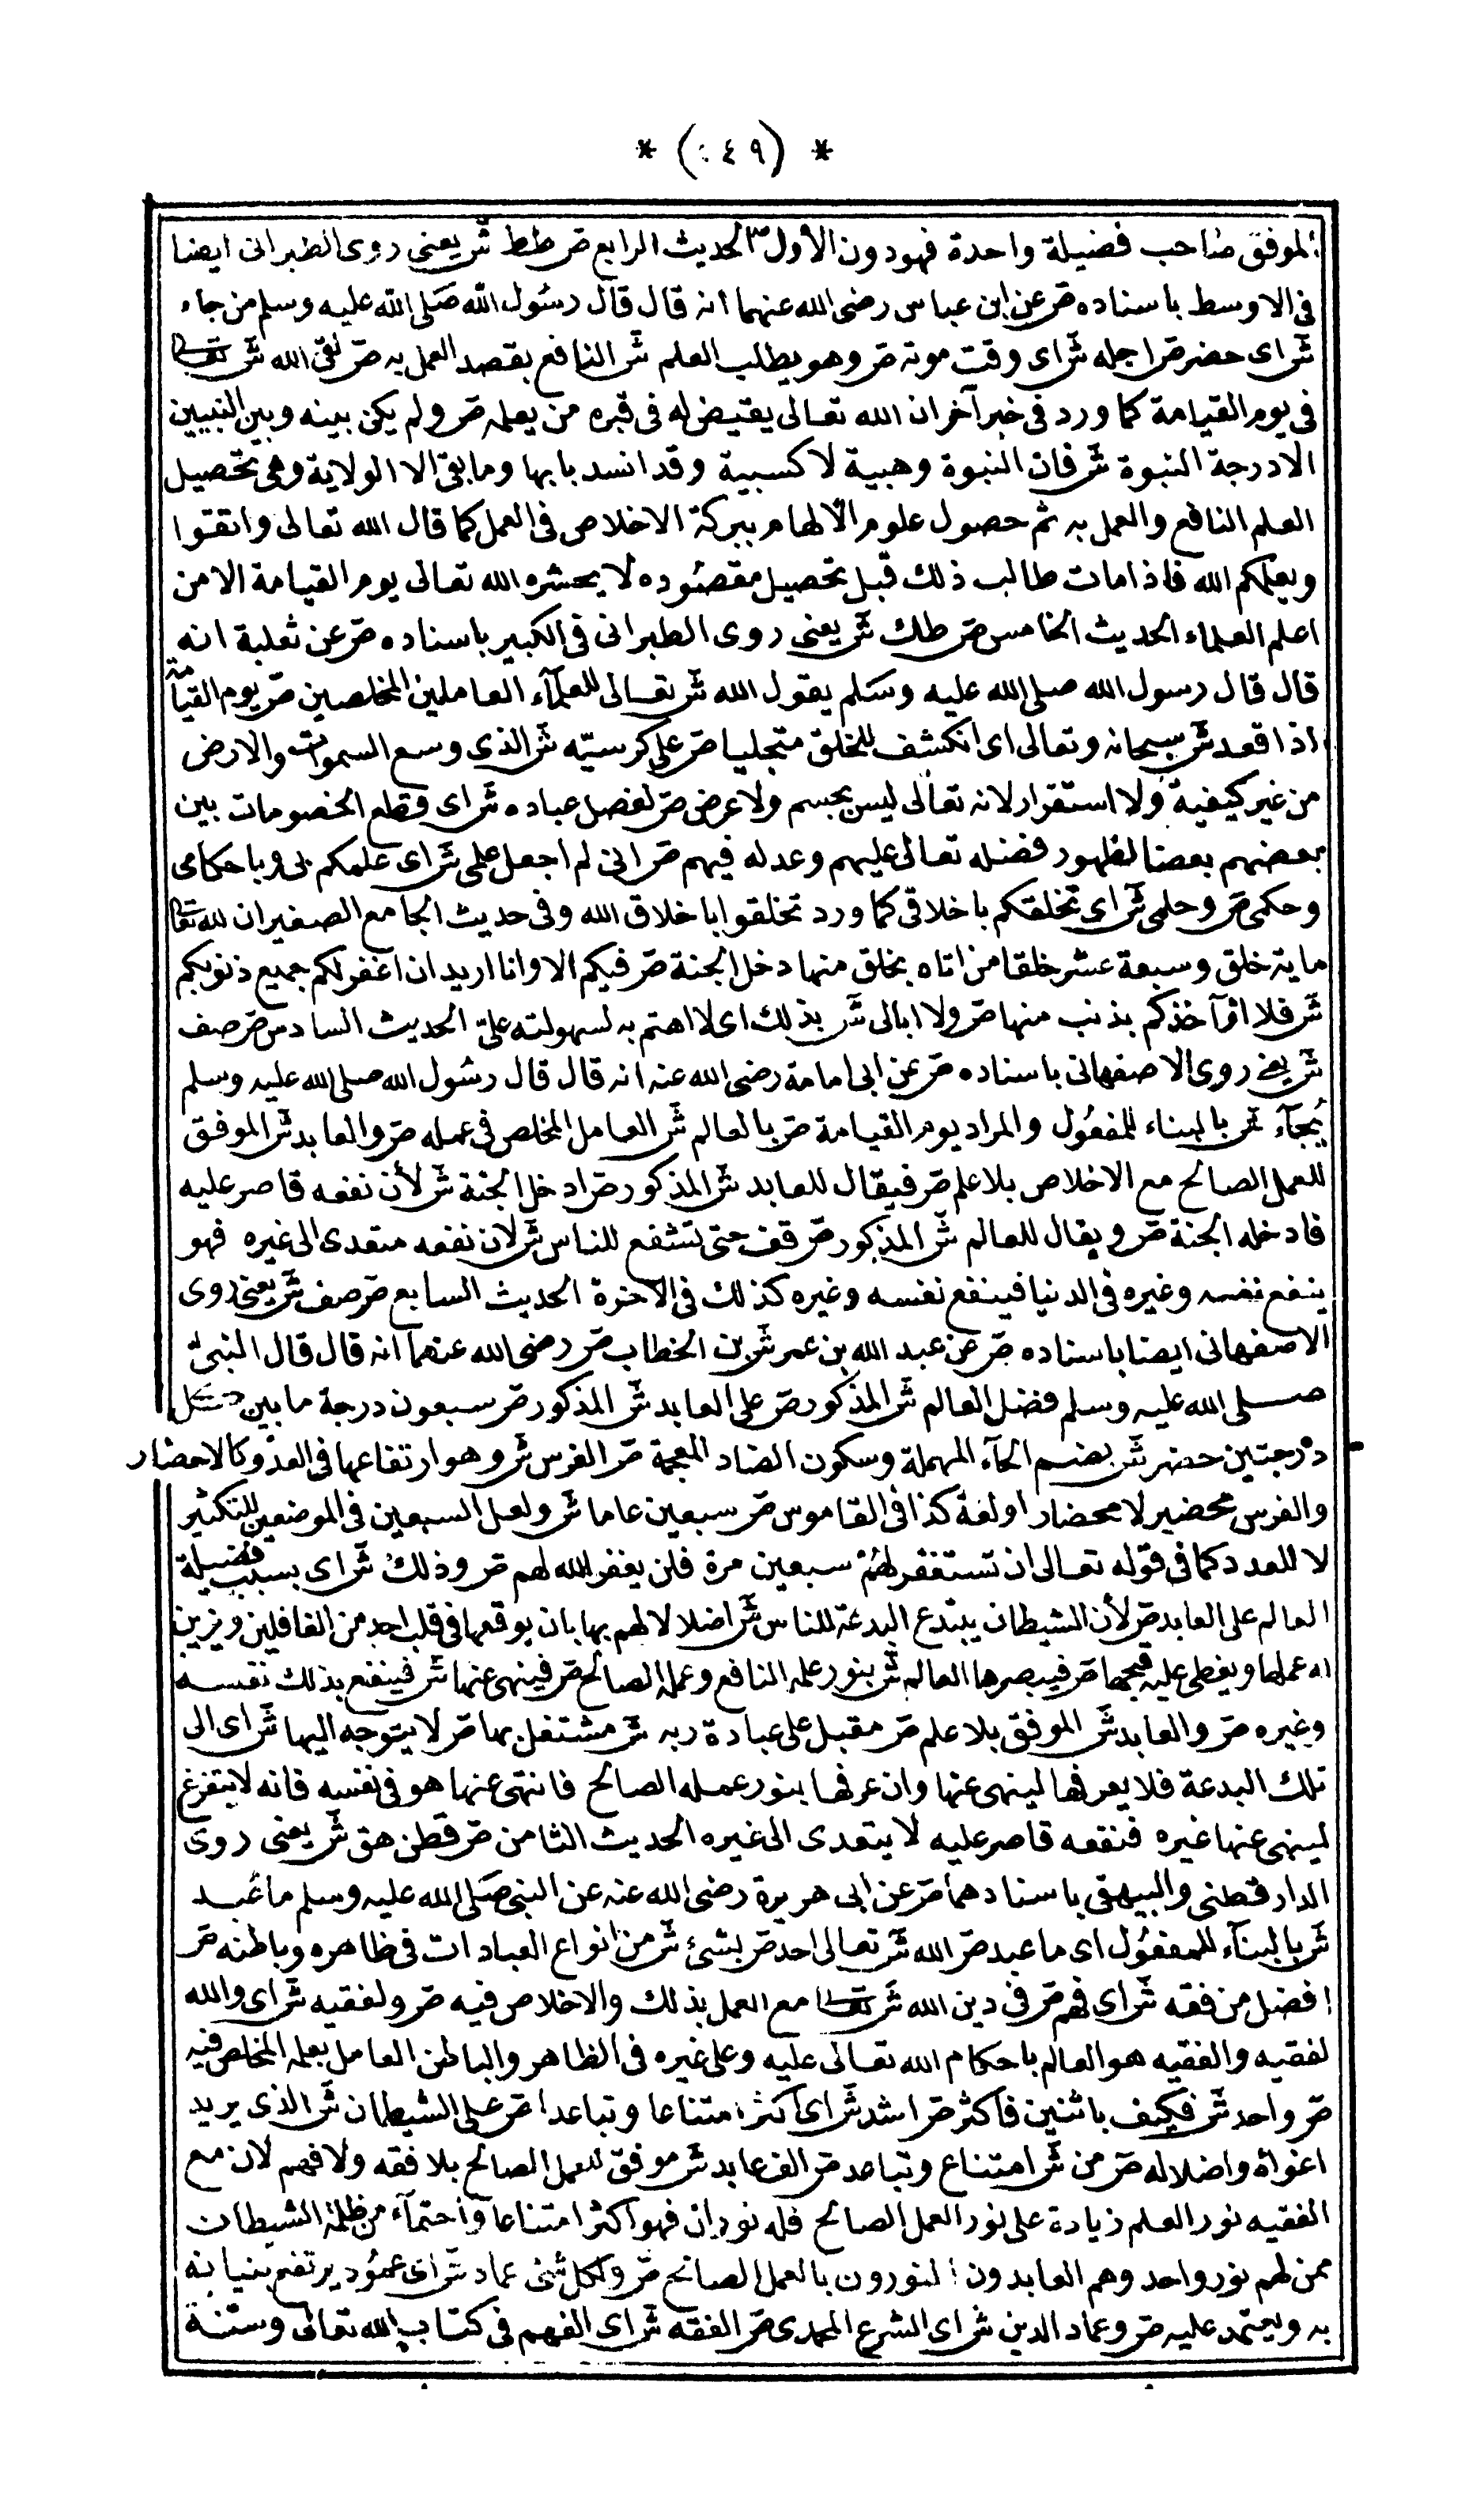 * (٤٩:) *
الموفق صاحب فضيلة واحدة فهو دون الأول الحديث الرابع ص طط ش يعنى روى الطبرانى ايضا
فى الاوسط باسناده ص عن ابن عباس رضى الله عنهما انه قال قال رسول الله صلى الله عليه وسلم من جاء
ش اى حضر ص اجله ش اى وقت موته ص وهو يطلب العلم ش النافع بقصد العمل به ص لقى الله ش تعالى
فى يوم القيامة كما ورد فى خبر آخر ان الله تعالى يقيض له فى قبره من يعلمه ص ولم يكن بينه وبين النبيين
الا درجة النبوة ش فان النبوة وهبية لا كسبية وقد انسد بابها وما بقى الا الولاية وهى تحصيل
العلم النافع والعمل به ثم حصول علوم الالهام ببركة الاخلاص فى العمل كما قال الله تعالى واتقوا
ويعلمكم الله فاذا مات طالب ذلك قبل تحصيل مقصوده لا يحشره الله تعالى يوم القيامة الا من
اعلم العلماء الحديث الخامس ص طك ش يعنى روى الطبرانى فى الكبير باسناده ص عن ثعلبة انه
قال قال رسول الله صلى الله عليه وسلم يقول الله ش تعالى للعلمآء العاملين المخلصين ص يوم القيامة
اذا قعد ش سبحانه وتعالى اى انكشف للخلق متجليا ص على كرسيّه ش الذى وسع السموات والارض
من غير كيفية ولا استقرار لانه تعالى ليس بجسم ولا عرض ص لفصل عباده ش اى قطع الخصومات بين
بعضهم بعضا لظهور فضله تعالى عليهم وعدله فيهم ص انى لم اجعل علمى ش اى علمكم بى وباحكامى
وحكمى ص وحلمى ش اى تخلقكم باخلاقى كما ورد تخلقوا باخلاق الله وفى حديث الجامع الصغير ان لله تعالى
ماية خلق وسبعة عشر خلقا من اتاه بخلق منها دخل الجنة ص فيكم الا وانا اريد ان اغفر لكم جميع ذنوبكم
ش فلا اؤآخذكم بذنب منها ص ولا ابالى ش بذلك اى لا اهتم به لسهولته علىّ الحديث السادس ص صف
ش يعنى روى الاصفهانى باسناده ص عن ابى امامة رضى الله عنه انه قال قال رسول الله صلى الله عليه وسلم
يُجآء ش بالبناء للمفعول والمراد يوم القيامة ص بالعالم ش العامل المخلص فى عمله ص والعابد ش الموفق
للعمل الصالح مع الاخلاص بلا علم ص فيقال للعابد ش المذكور ص ادخل الجنة ش لأن نفعه قاصر عليه
فادخله الجنة ص ويقال للعالم ش المذكور ص قف حتى تشفع للناس ش لان نفعه متعدى الى غيره فهو
ينفع نفسه وغيره فى الدنيا فينفع نفسه وغيره كذلك فى الاخرة الحديث السابع ص صف ش يعنى روى
الاصفهانى ايضا باسناده ص عن عبد الله بن عمر ش بن الخطاب ص رضى الله عنهما انه قال قال النبىّ
صلى الله عليه وسلم فضل العالم ش المذكور ص على العابد ش المذكور ص سبعون درجة ما بين كل
درجتين حضر ش بضم الحآء المهملة وسكون الضاد المعجمة ص الفرس ش وهو ارتفاعها فى العدو كالاحضار
والفرس محضير لا محضار او لغة كذا فى القاموس ص سبعين عاما ش ولعل السبعين فى الموضعين للتكثير
لا للعدد كما فى قوله تعالى ان تستغفر لهم سبعين مرة فلن يغفر الله لهم ص وذلك ش اى بسبب فضيلة
العالم على العابد ص لأن الشيطان يبتدع البدعة للناس ش اضلالا لهم بها بان يوقعها فى قلب احد من الغافلين ويزين
له عملها ويغطى عليه قبحها ص فيبصرها العالم ش بنور علمه النافع وعمله الصالح ص فينهى عنها ش فينفع بذلك نفسه
وغيره ص والعابد ش الموفق بلا علم ص مقبل على عبادة ربه ش مشتغل بها ص لا يتوجه اليها ش اى الى
تلك البدعة فلا يعرفها لينهى عنها وان عرفها بنور عمله الصالح فانتهى عنها هو فى نفسه فانه لا يتفرغ
لينهى عنها غيره فنفعه قاصر عليه لا يتعدى الى غيره الحديث الثامن ص قطن هق ش يعنى روى
الدارقطنى والبيهقى باسنادهما ص عن ابى هريرة رضى الله عنه عن النبى صلى الله عليه وسلم ما عُبد
ش بالبنآء للمفعول اى ما عبد ص الله ش تعالى احد ص بشئ ش من انواع العبادات فى ظاهره وباطنه ص
افضل من فقه ش اى فهم ص فى دين الله ش تعالى مع العمل بذلك والاخلاص فيه ص ولفقيه ش اى والله
لفقيه والفقيه هو العالم باحكام الله تعالى عليه وعلى غيره فى الظاهر والباطن العامل بعلمه المخلص فيه
ص واحد ش فكيف باثنين فاكثر ص اشد ش اى اكثر امتناعا وتباعدا ص على الشيطان ش الذى يريد
اغواه واضلاله ص من ش امتناع وتباعد ص الف عابد ش موفق للعمل الصالح بلا فقه ولا فهم لان مع
الفقيه نور العلم زيادة على نور العمل الصالح فله نوران فهو اكثر امتناعا واحتمآء من ظلمة الشيطان
ممن لهم نور واحد وهم العابدون المنورون بالعمل الصالح ص ولكل شئ عماد ش اى عمود يرتفع بنيانه
به ويعتمد عليه ص وعماد الدين ش اى الشرع المحمدى ص الفقه ش اى الفهم فى كتاب الله تعالى وسنة